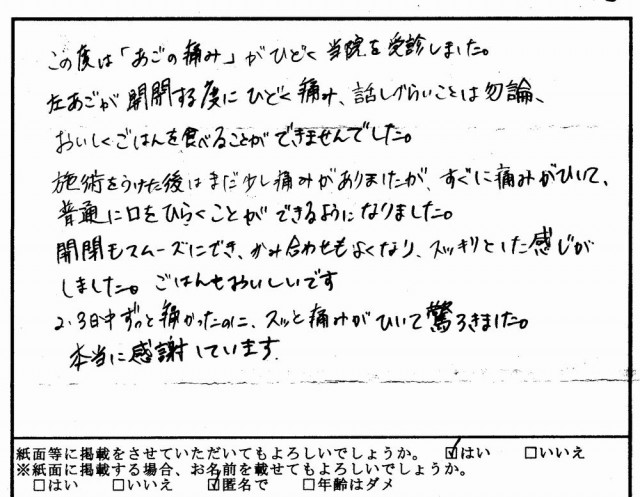 この度は「あごの痛み」がひどく当院を受診しました。
左あごが開閉する度にひどく痛み、話しづらいことは勿論、
おいしくごはんを食べることができませんでした。
施術をうけた後はまだ少し痛みがありましたが、すぐに痛みがひいて、
普通に口をひらくことができるようになりました。
開閉もスムーズにでき、かみ合わせもよくなり、スッキリとした感じが
しました。ごはんもおいしいです
2、3日中ずっと痛かったのに、スッと痛みがひいて驚ろきました。
本当に感謝しています
紙面等に掲載をさせていただいてもよろしいでしょうか。 ☑はい □いいえ
※紙面に掲載する場合、お名前を載せてもよろしいでしょうか。
□はい □いいえ ☑匿名で □年齢はダメ